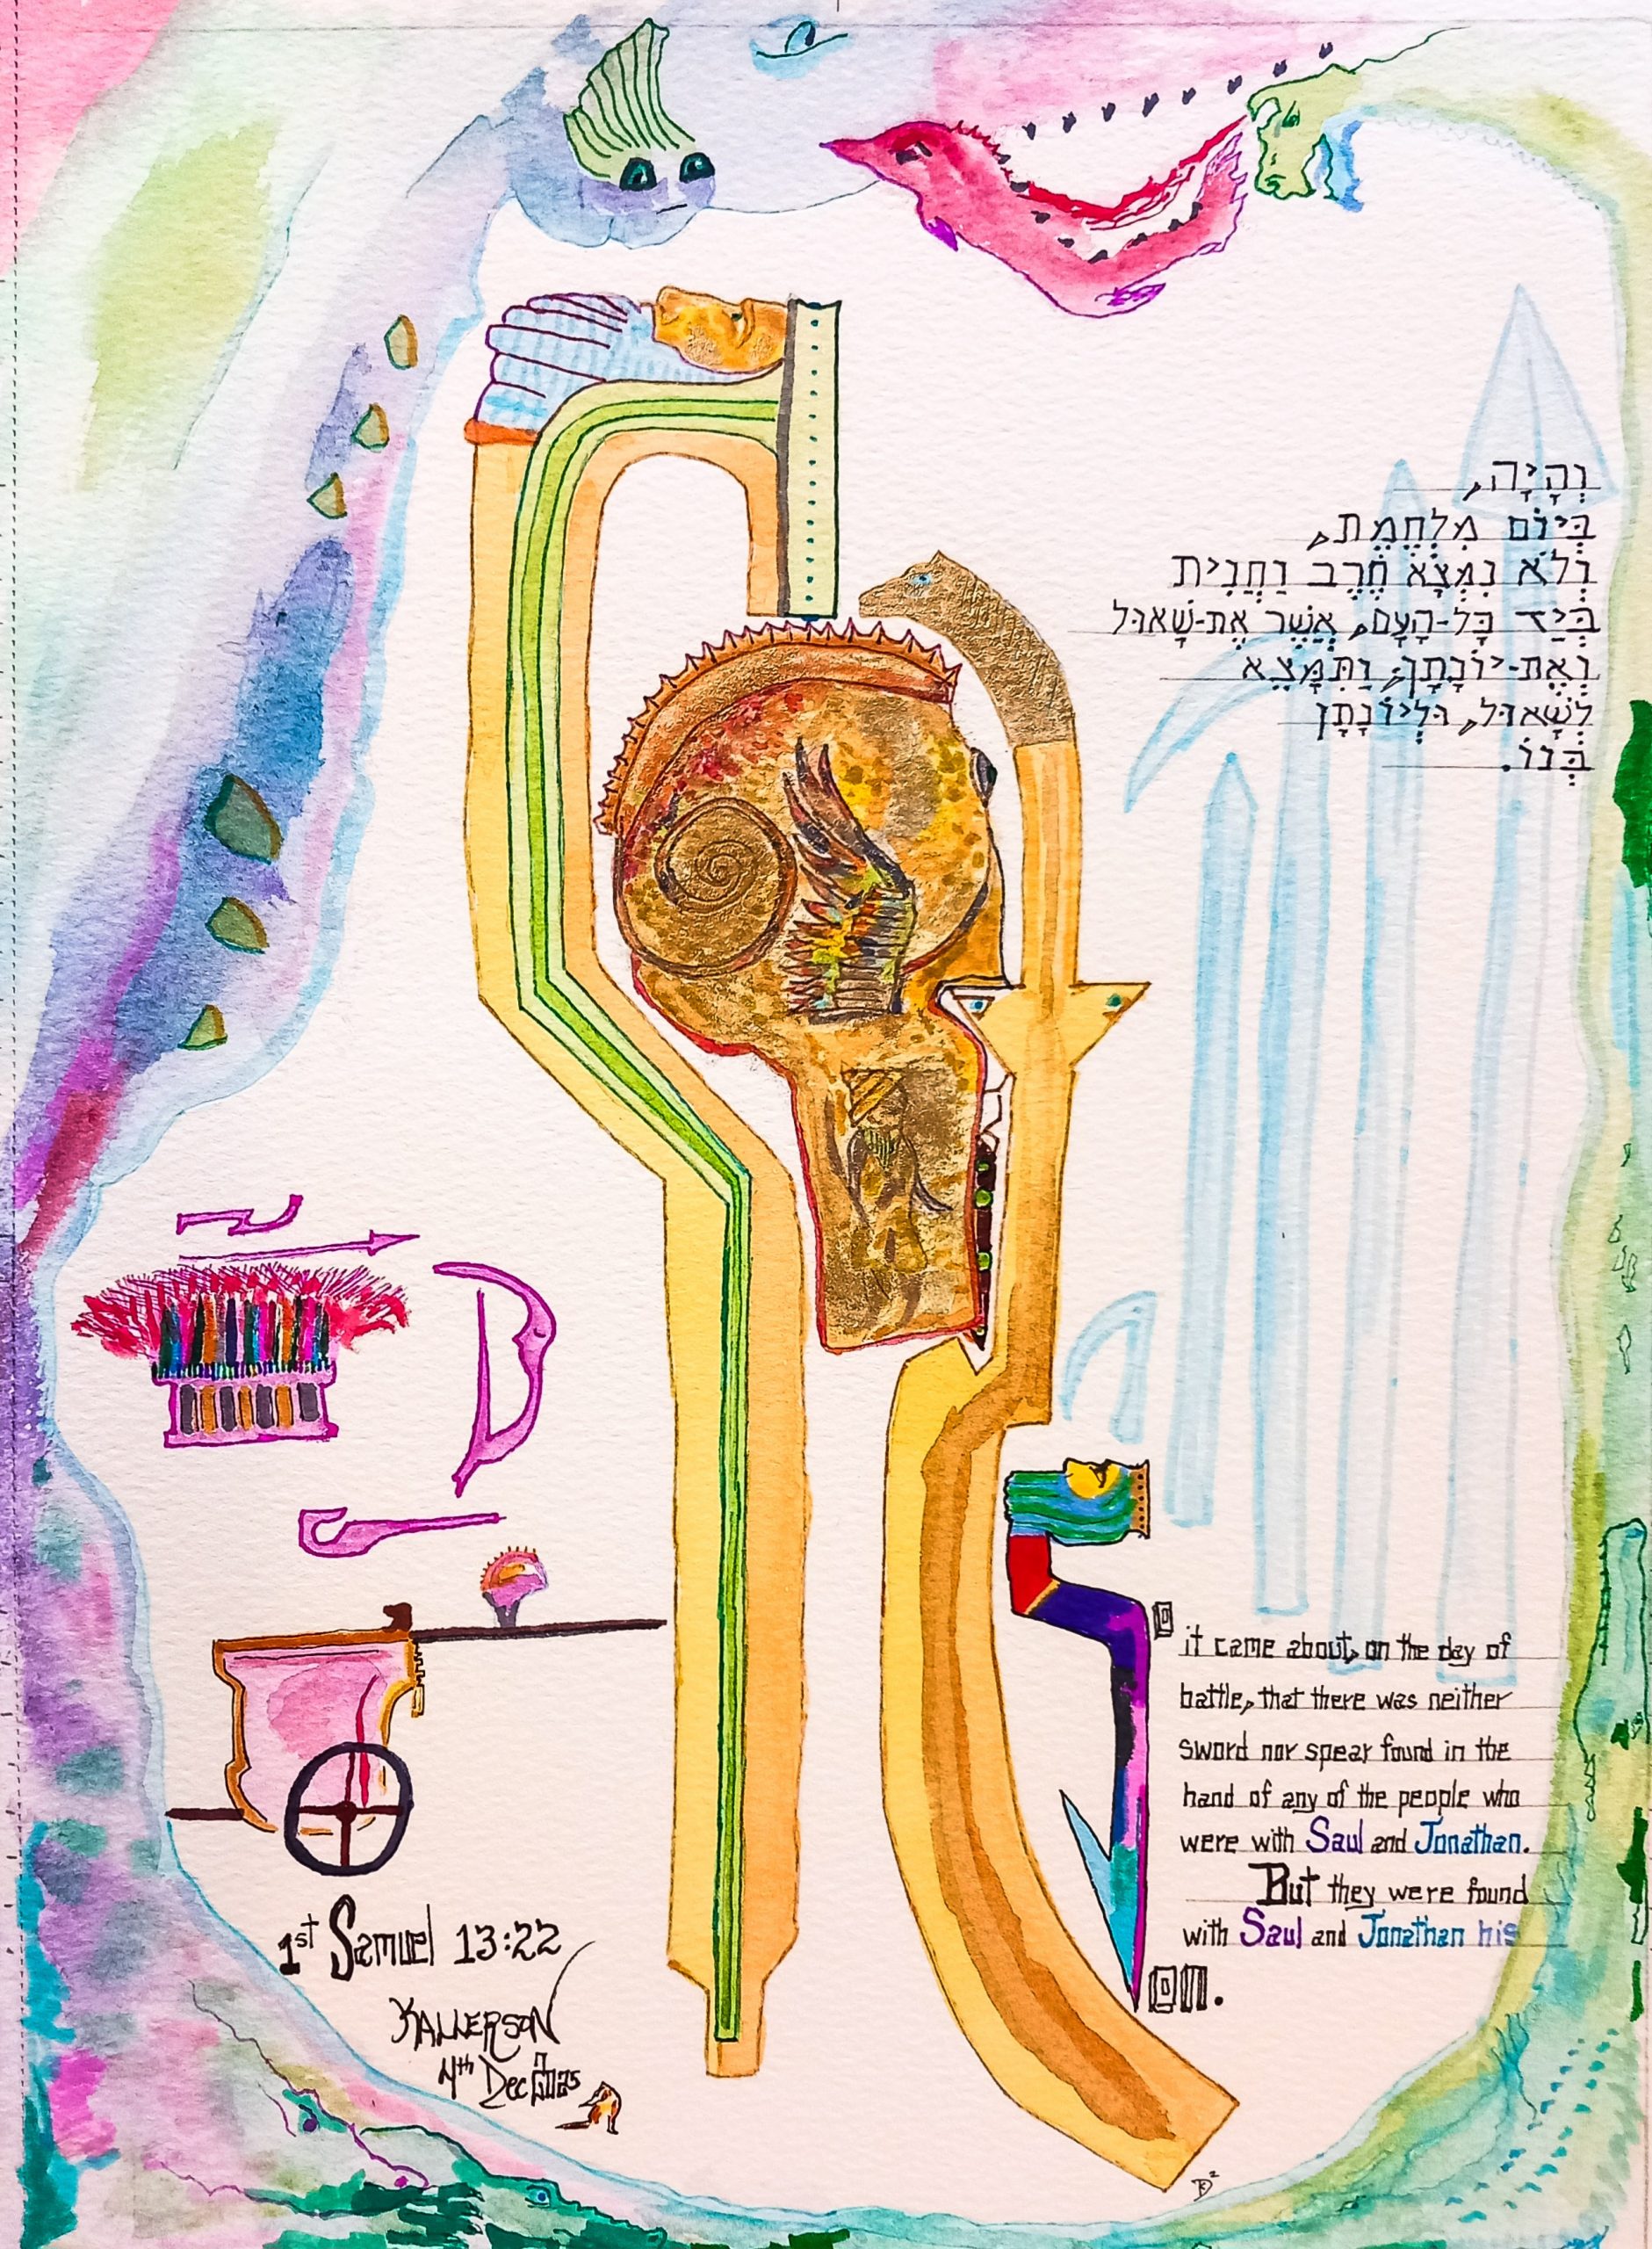 וְהָיָה,
בְּיוֹם מִלְחֶמֶת,
וְלֹא נִמְצָא חֶרֶב וַחֲנִית
בְּיַד כָּל-הָעָם, אֲשֶׁר אֶת-שָׁאוּל
וְאֶת-יוֹנָתָן; וַתִּמָּצֵא
לְשָׁאוּל, וּלְיוֹנָתָן
בְּנוֹ.
So it came about, on the day of
battle, that there was neither
sword nor spear found in the
hand of any of the people who
were with Saul and Jonathan.
But they were found
with Saul and Jonathan his
Son.
1st Samuel 13:22
KALLERSON
4th Dec